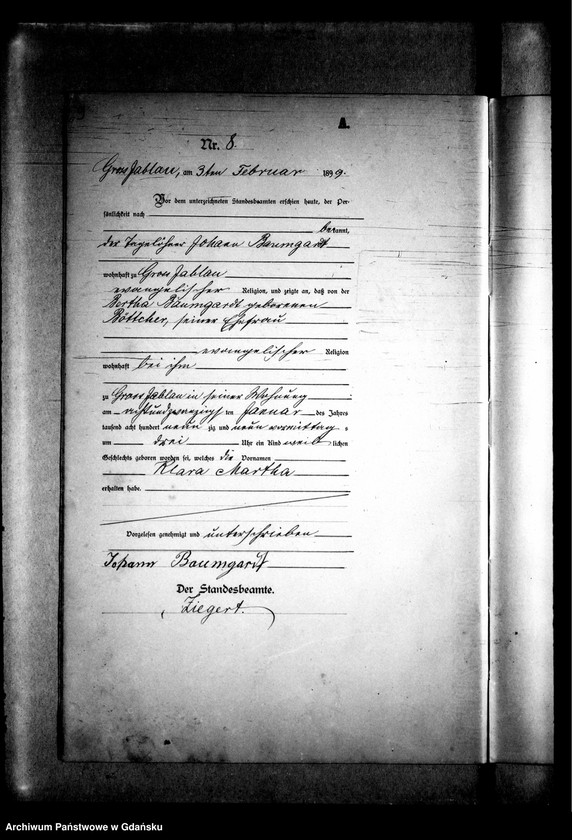 A.
Nr. 8.
Gross Jablau, am 3ten Februar 1899.
Vor dem unterzeichneten Standesbeamten erschien heute, der Per-
sönlichkeit nach
bekannt,
der Tagelöhner Johann Baumgardt
wohnhaft zu Gross Jablau
evangelischer Religion, und zeigte an, daß von der
Bertha Baumgardt geborenen
Böttcher, seiner Ehefrau
evangelischer Religion
wohnhaft bei ihm
zu Gross Jablau in seiner Wohnung
am achtundzwanzigsten Januar des Jahres
tausend acht hundert neunzig und neun vormittags
um drei Uhr ein Kind weiblichen
Geschlechts geboren worden sei, welches die Vornamen
Klara Martha
erhalten habe.
Vorgelesen genehmigt und unterschrieben
Johann Baumgardt
Der Standesbeamte.
Ziegert.
Archiwum Państwowe w Gdańsku